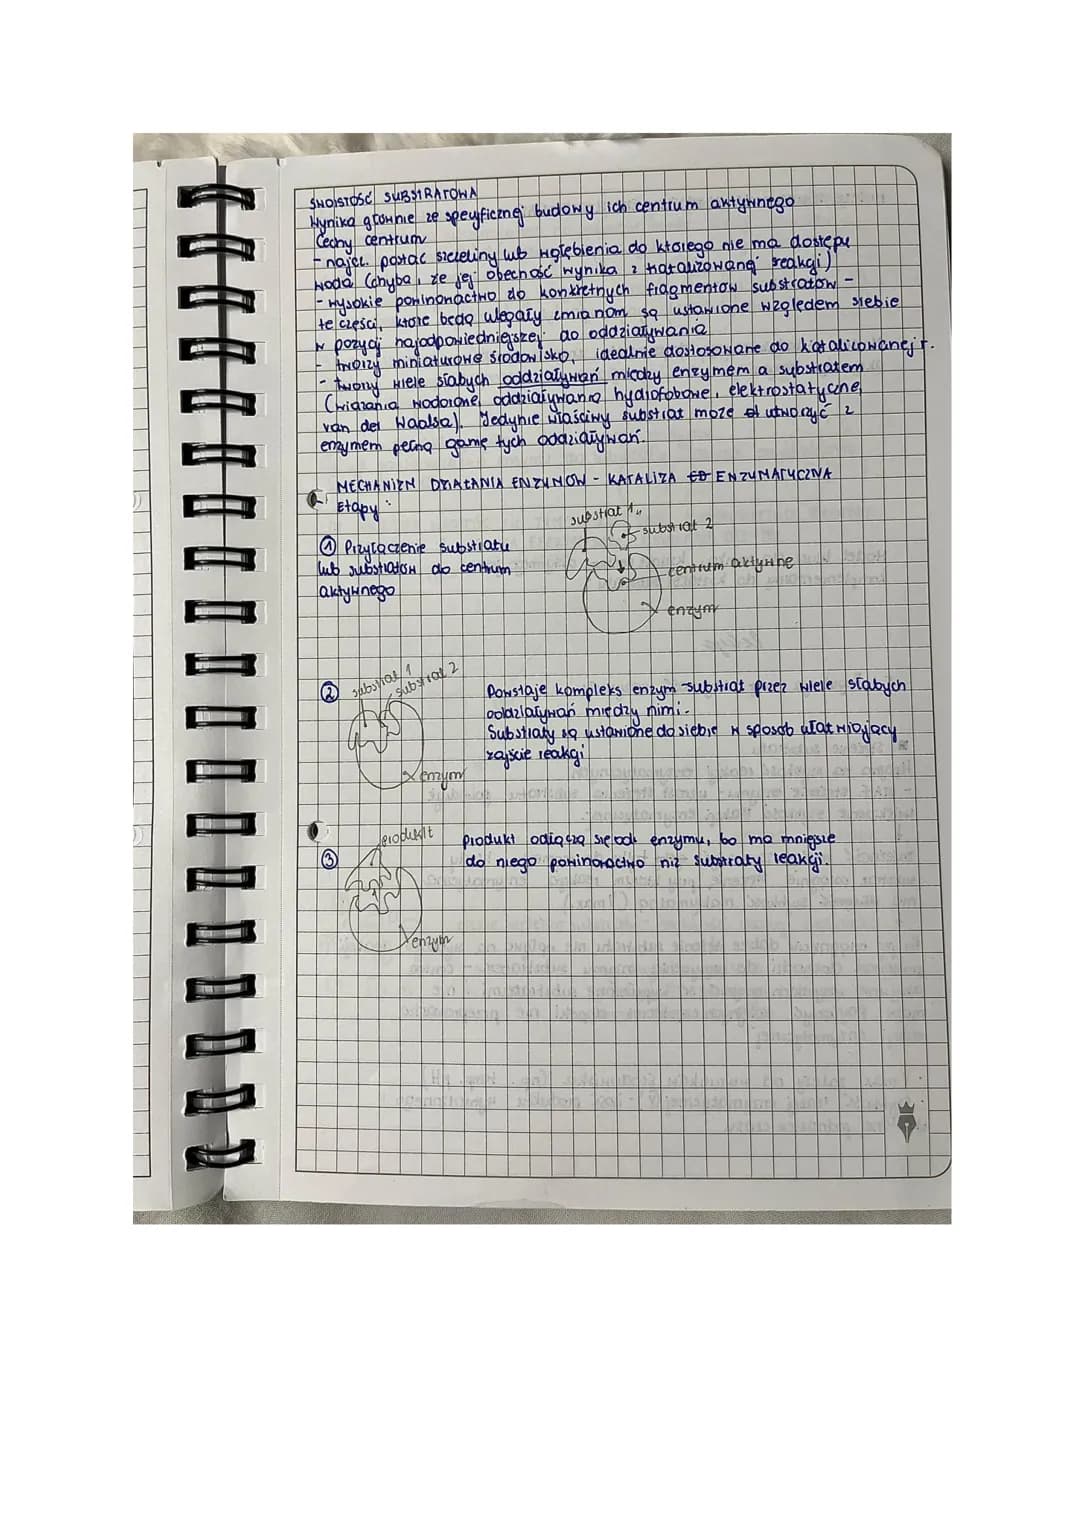 SWOISTOŚĆ SUBSTRATOWA
Wynika głównie ze specyficznej budowy ich centrum aktywnego
Cechy centrum
- najcz. postać szczeliny lub wgłębienia do którego nie ma dostępu
woda (chyba, że jej obecność wynika z katalizowanej reakcji)
- wysokie powinowactwo do konkretnych fragmentów substratów -
te części, które będą ulegały zmianom są ustawione względem siebie
w pozycji najodpowiedniejszej do oddziaływania
- tworzy miniaturowe środowisko, idealnie dostosowane do katalizowanej r.
- tworzy wiele słabych oddziaływań między enzymem a substratem
(wiązania wodorowe, oddziaływania hydrofobowe, elektrostatyczne,
van der Waalsa). Jedynie właściwy substrat może utworzyć z
enzymem pełną gamę tych oddziaływań.
MECHANIZM DZIAŁANIA ENZYMÓW - KATALIZA ENZYMATYCZNA
Etapy:
substrat 1
substrat 2
① Przyłączenie substratu
lub substratów do centrum
aktywnego
centrum aktywne
enzym
② substrat 1
substrat 2
Powstaje kompleks enzym-substrat przez wiele słabych
oddziaływań między nimi.
Substraty są ustawione do siebie w sposób ułatwiający
zajście reakcji
enzym
③ produkt
produkt odłącza się od enzymu, bo ma mniejsze
do niego powinowactwo niż substraty reakcji.
enzym